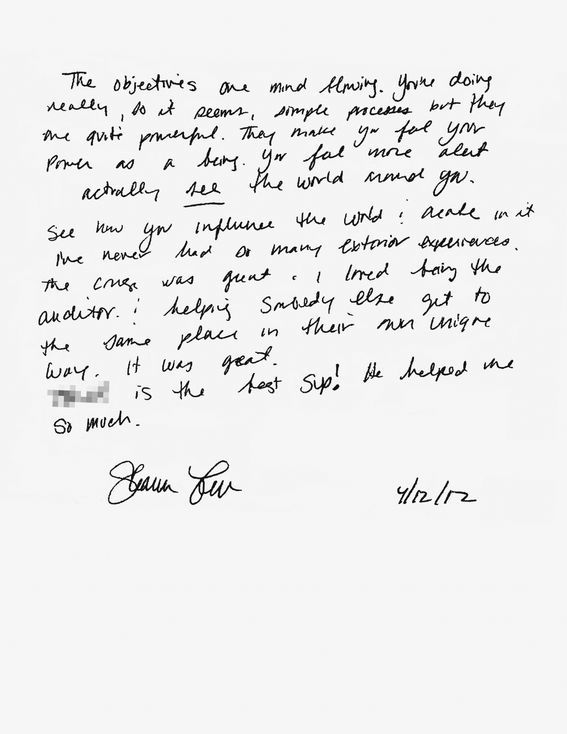 The objectives are mind blowing. You're doing
really, so it seems, simple processes but they
are quite powerful. They make you feel your
power as a being. You feel more alert
actually see the world around you.
See how you influence the world & create in it
I've never had so many exterior experiences.
the course was great. I loved being the
auditor & helping somebody else get to
the same place in their own unique
way. It was great.
is the best Sup! He helped me
So much.
4/12/12